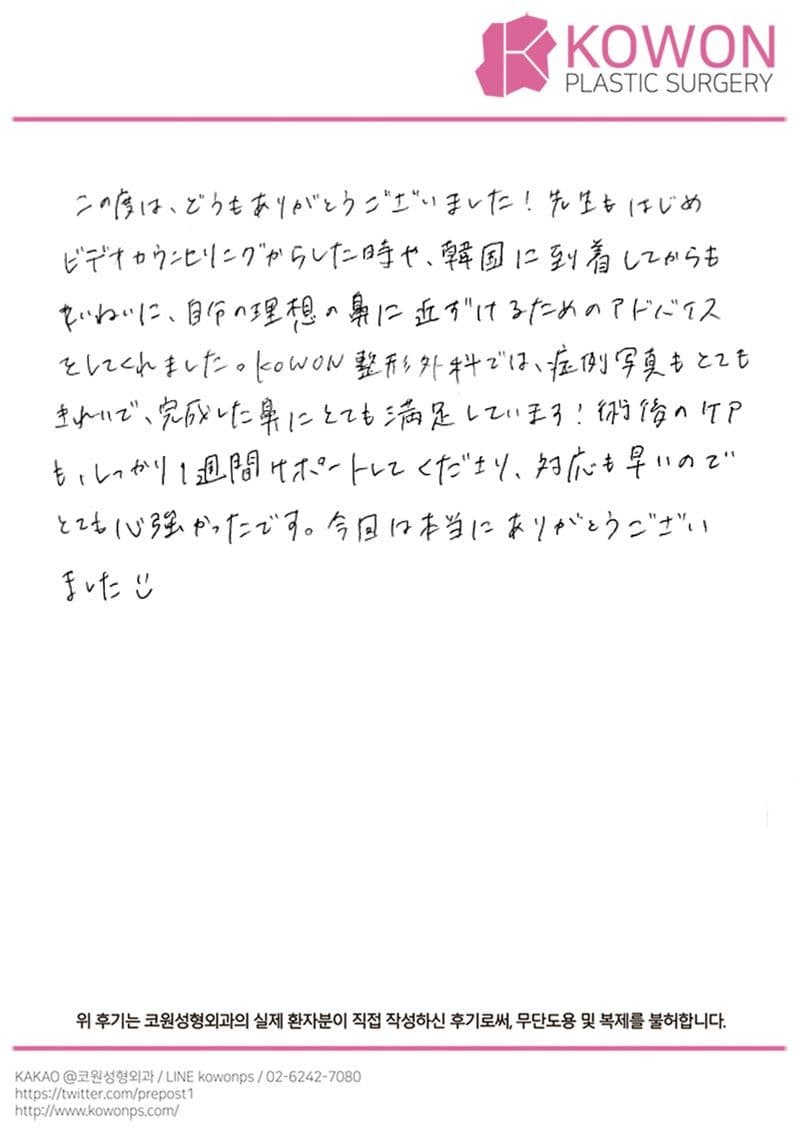 KOWON
PLASTIC SURGERY
この度は、どうもありがとうございました！先生もはじめ
ビデオカウンセリングからした時や、韓国に到着してからも
ていねいに、自分の理想の鼻に近ずけるためのアドバイス
をしてくれました。KOWON整形外科では、症例写真もとても
きれいで、完成した鼻にとても満足しています！術後のケア
も、しっかり1週間サポートしてくださり、対応も早いので
とても心強かったです。今回は本当にありがとうござい
ました
위 후기는 코원성형외과의 실제 환자분이 직접 작성하신 후기로써, 무단도용 및 복제를 불허합니다.
KAKAO @코원성형외과 / LINE kowonps / 02-6242-7080
https://twitter.com/prepost1
http://www.kowonps.com/